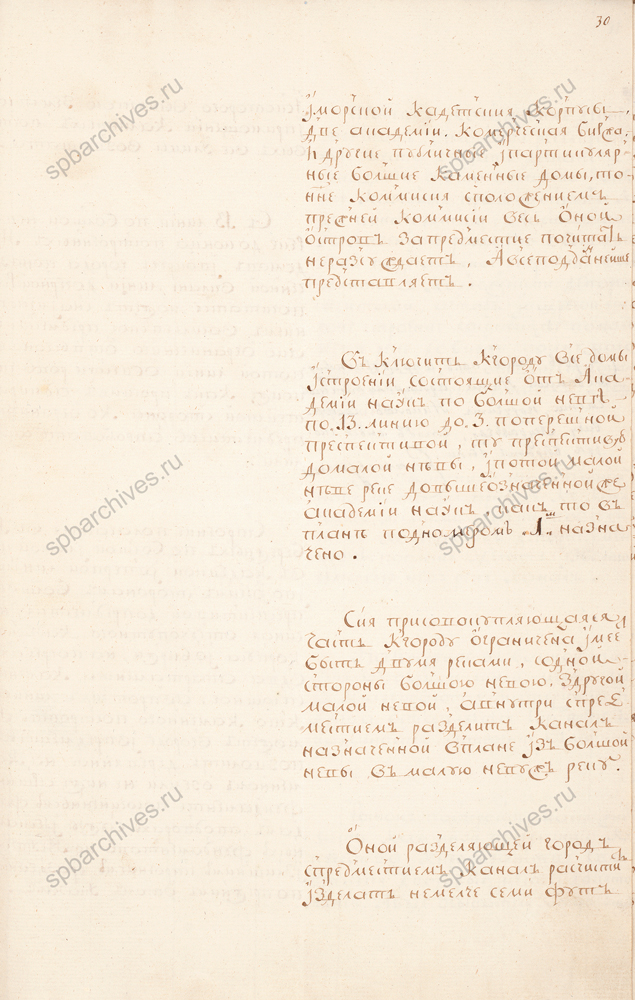 30
іморской кадетския корпусы,
две академіи, комерческая биржа
и другие публичные іпартикуляр-
ные болшие каменные домы, то
нне коммисия сположениемъ
прежней коммисіи весь оной
островъ запредместие почитать
неразсуждаетъ, Авсеподданейше
представляетъ.
Въключить кгороду все домы
істроеніи состоящие отъ Ака-
деміи наукъ по болшой невѣ
по 13. линию до 3. поперешной
преспективой, ту преспективъ
домалой невы, іпотой малой
невѣ реке довышеозначенной же
академіи наукъ, какъ то въ
планѣ подномером 1м назна
чено.
Сия присовокупляющаяся
часть кгороду ограничена імее
быть двумя реками, содной
стороны болшою невою, Здругой
малой невой, авнутри спред
местием разделитъ каналъ
назначенной вплане ізъ болшой
невы въ малую невужъ реку.
Оной разделяющей городъ
спредместием каналъ расчистить
ізделать немелче семи футъ
spbarchives.ru
spbarchives.ru
spbarchives.ru
spbarchives.ru
spbarchives.ru
spbarchives.ru